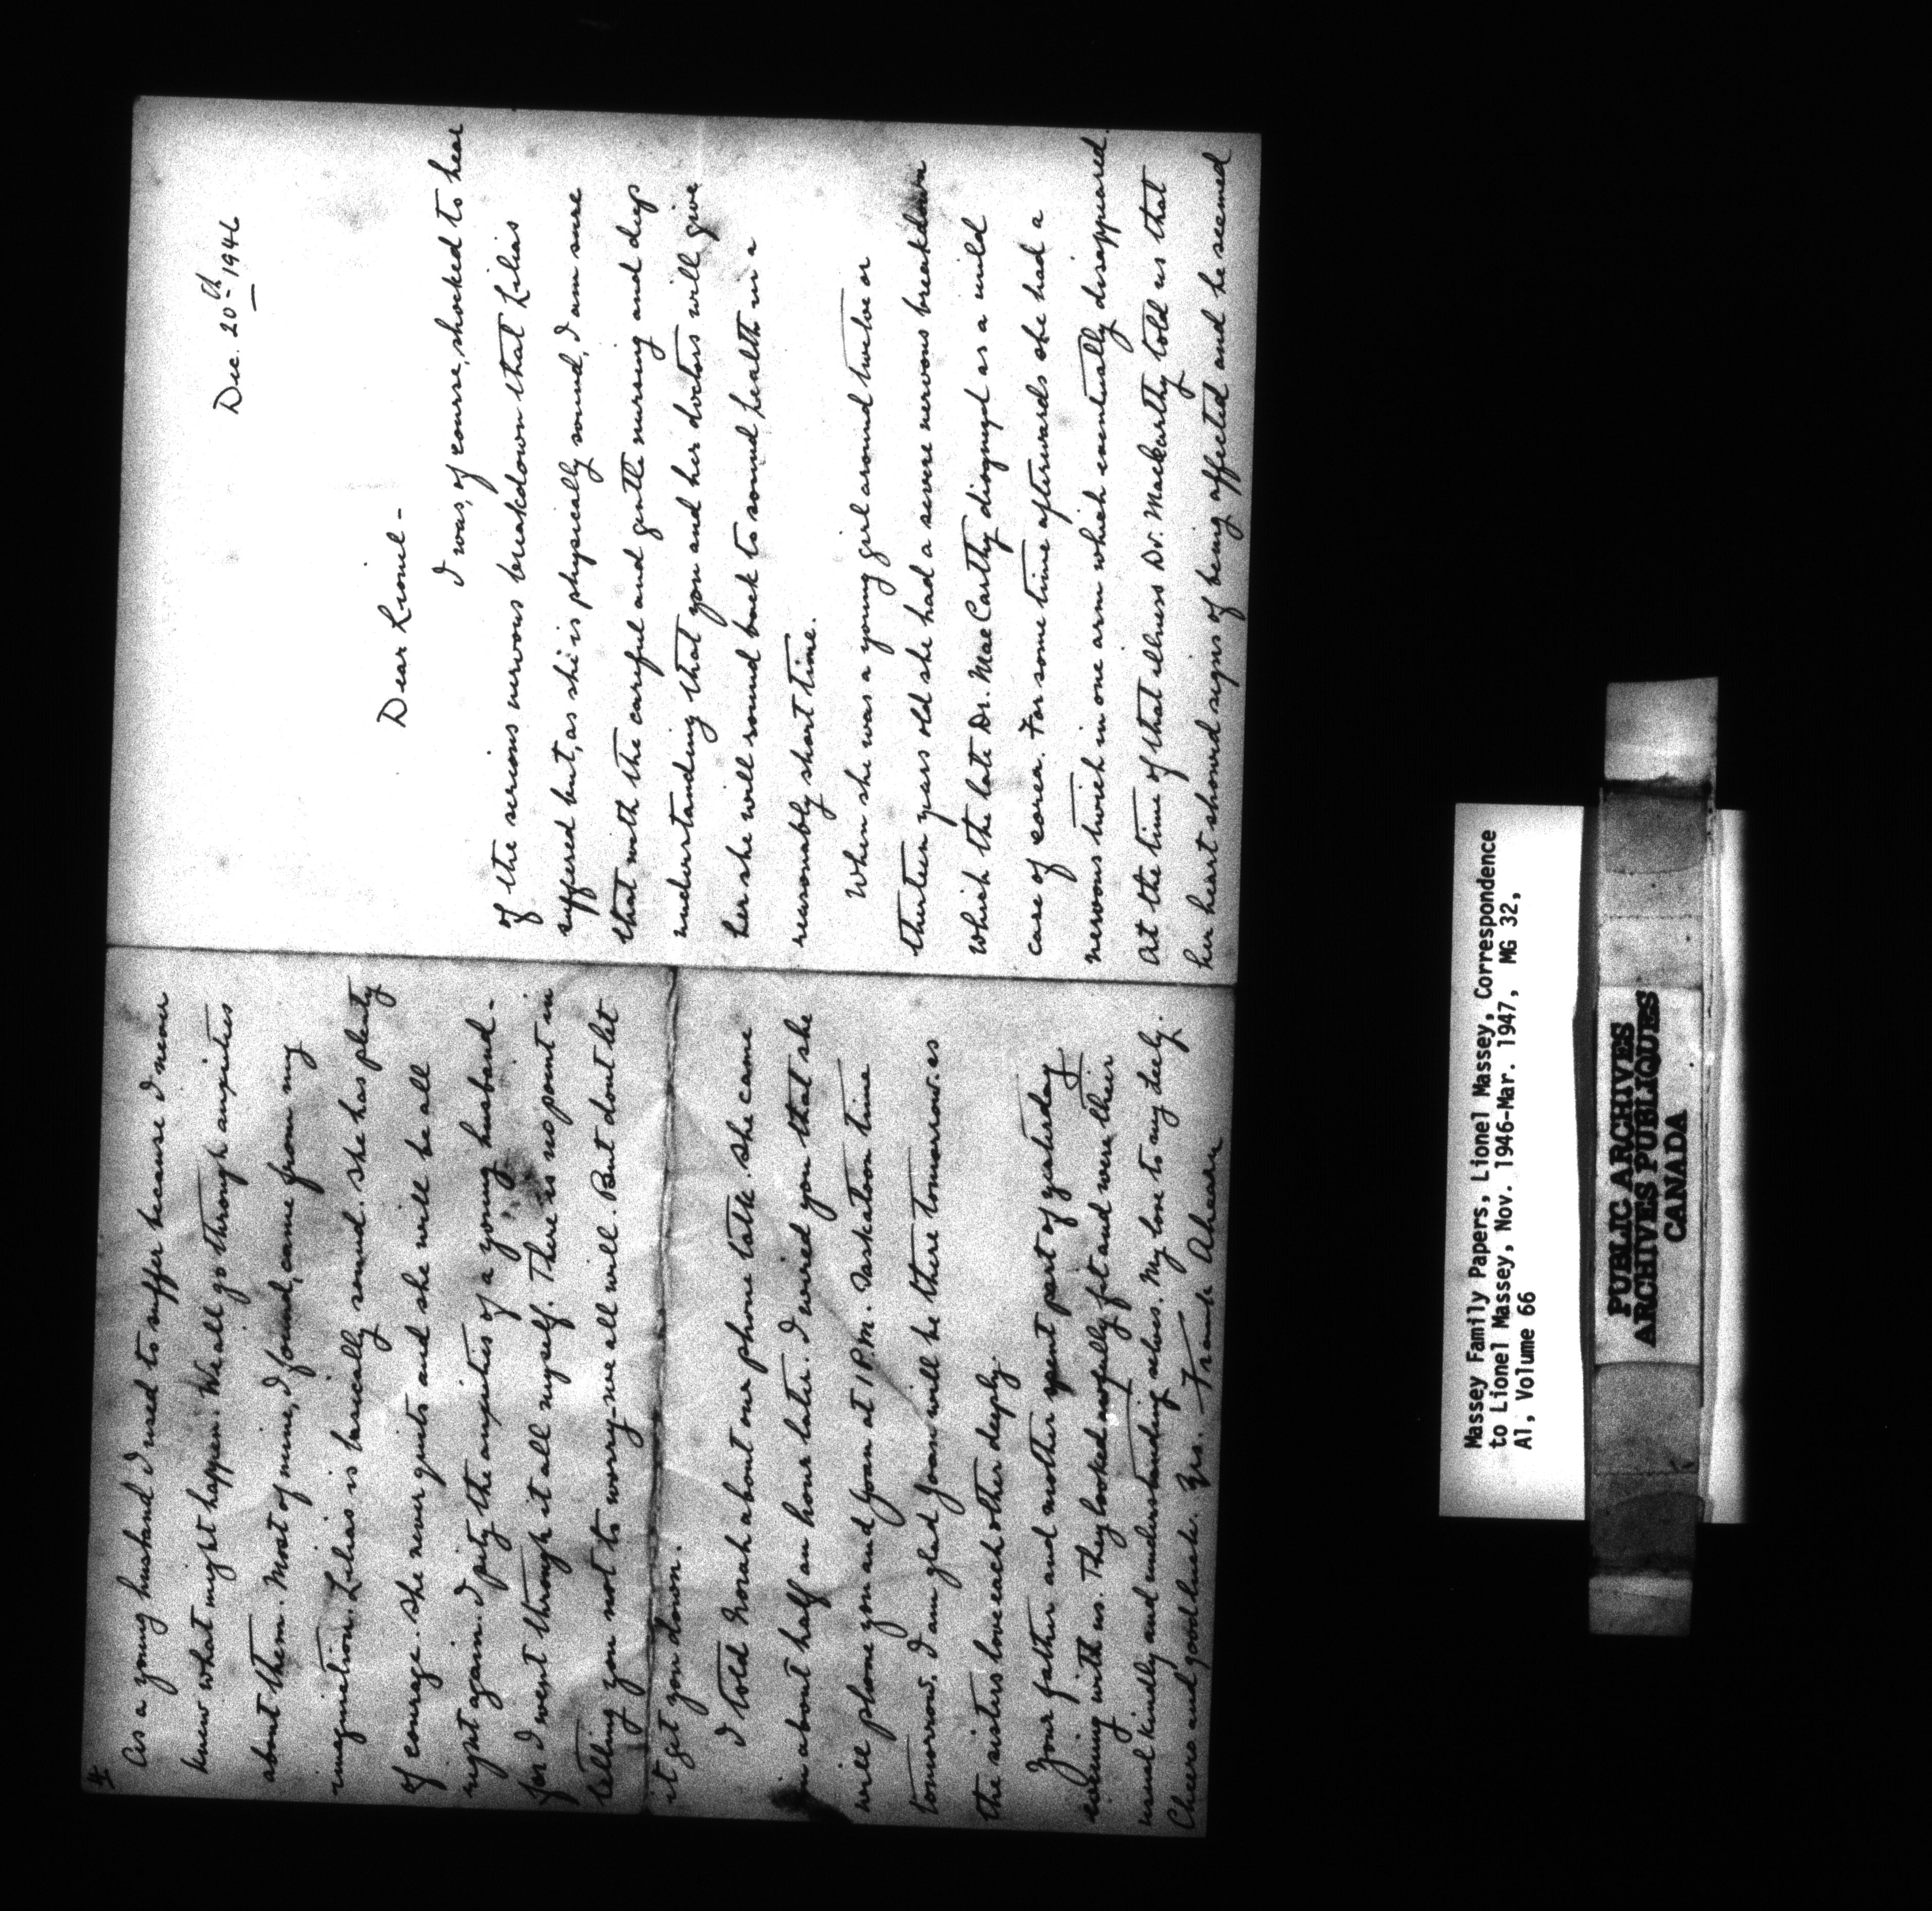 Dec. 20th 1946
Dear Lionel -
I was, of course, shocked to hear
of the serious nervous breakdown that Lilias
suffered but, as she is physically sound, I am sure
that with the careful and gentle nursing and deep
understanding that you and her doctors will give
her she will round back to sound health in a
reasonably short time.
When she was a young girl around twelve or
thirteen years old she had a severe nervous breakdown
which the late Dr. MacCarthy diagnosed as a mild
case of corea. For some time afterwards she had a
nervous twich in one arm which eventually disappeared.
At the time of that illness Dr. Mackarthy told us that
her heart showed signs of being affected and he seemed
4
As a young husband I used to suffer because I never
knew what might happen. We all go through anxieties
about them. Most of mine, I found, came from my
imagination. Lilias is basically sound. She has plenty
of courage. She never quits and she will be all
right again. I pity the anxieties of a young husband -
for I went through it all myself. There is no point in
telling you not to worry - we all will. But dont let
it get you down.
I told Norah about our phone talk. She came
in about half an hour later. I wired you that she
will phone you and Joan at 1 P.M. Saskatoon time
tomorrow. I am glad Joan will be there tomorrow as
the sisters love each other deeply.
Your father and mother spent part of yesterday
evening with us. They looked awfully fit and were their
usual kindly and understanding selves. My love to my Lely.
Cheerio and good luck. Yrs. Frank Ahearn
Massey Family Papers, Lionel Massey, Correspondence
to Lionel Massey, Nov. 1946-Mar. 1947, MG 32,
A1, Volume 66
PUBLIC ARCHIVES
ARCHIVES PUBLIQUES
CANADA